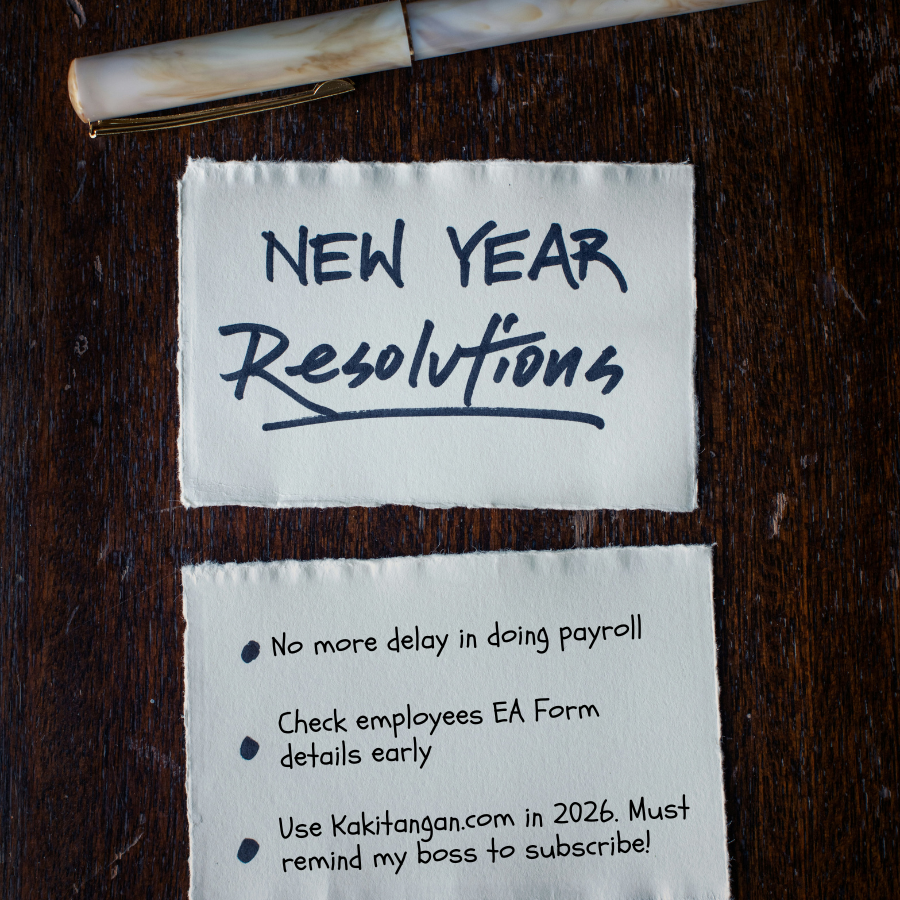 NEW YEAR
Resolutions
No more delay in doing payroll
Check employees EA Form
details early
Use Kakitangan.com in 2026. Must
remind my boss to subscribe!